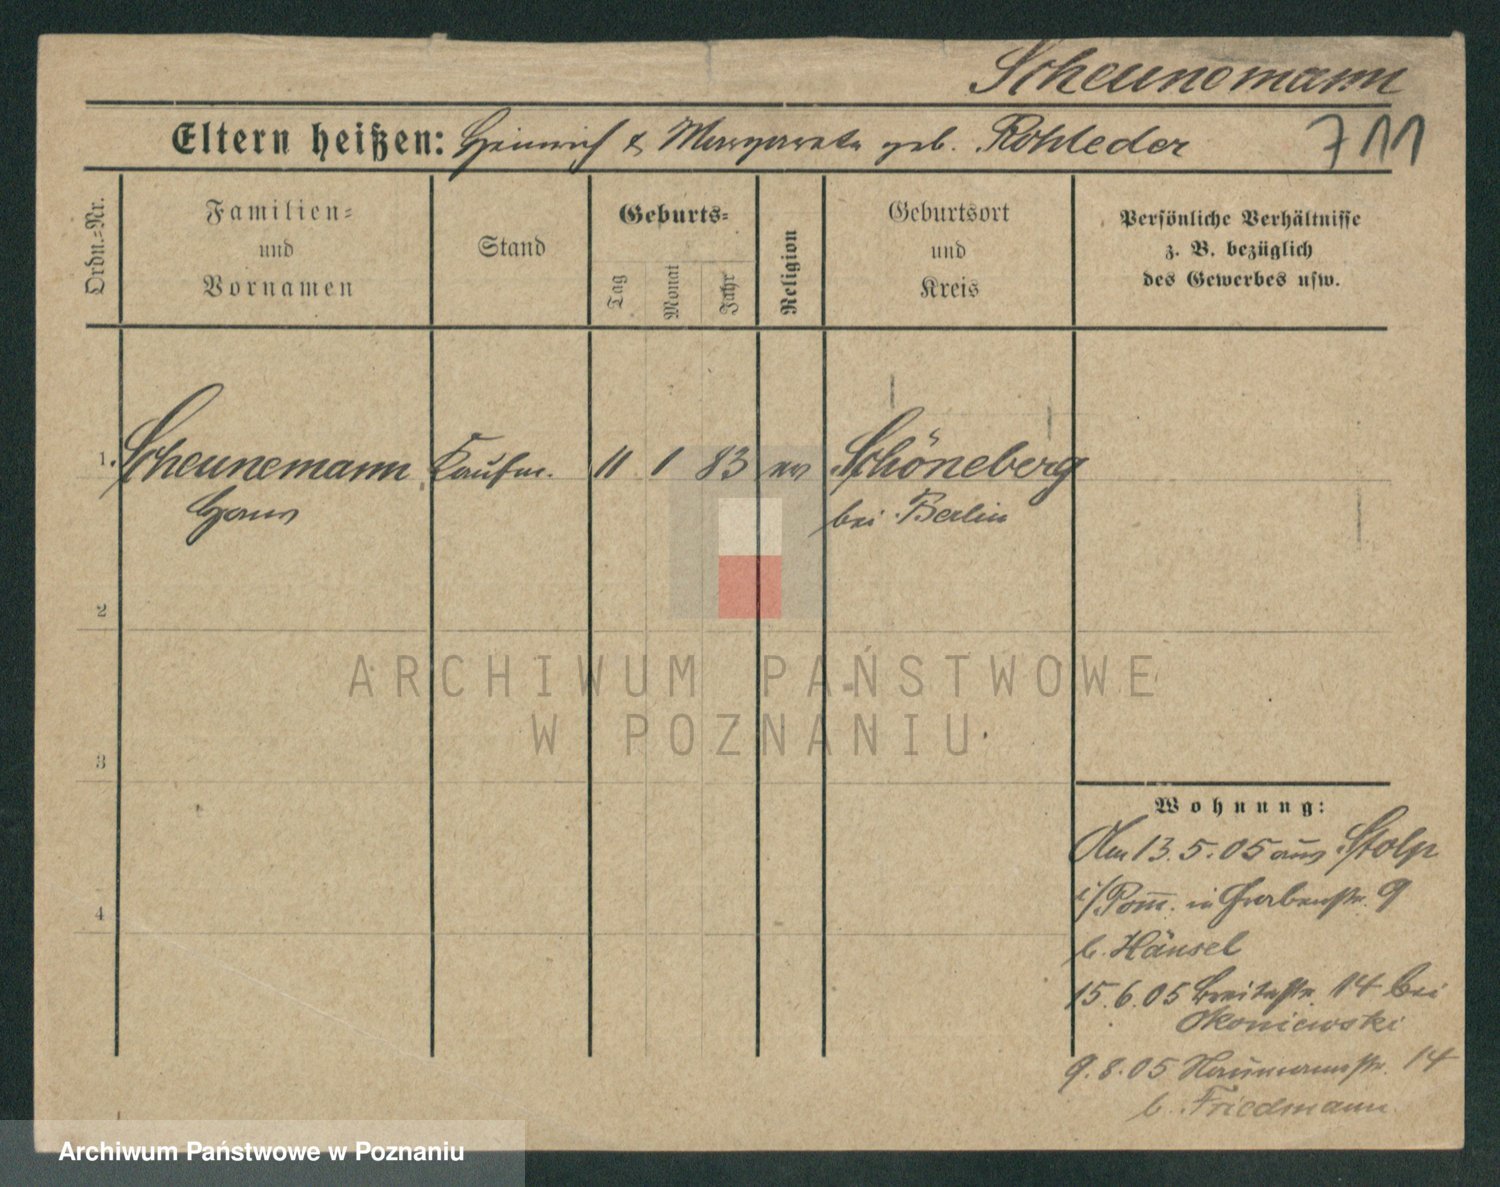 Scheunemann
Eltern heißen: Heinrich & Margarete geb. Rohleder
711
Ordn.-Nr.
Familien-
und
Vornamen
Stand
Geburts-
Tag
Monat
Jahr
Religion
Geburtsort
und
Kreis
Persönliche Verhältnisse
z. B. bezüglich
des Gewerbes usw.
1. Scheunemann Kaufm. 11 1 83 ev Schöneberg
Hans bei Berlin
2
3
4
ARCHIWUM PAŃSTWOWE
W POZNANIU
Wohnung:
Am 13.5.05 aus Stolp
i/Pom. in Grabenstr. 9
b. Hänsel
15.6.05 Breitestr. 14 bei
Okoniewski
9.8.05 Naumannstr. 14
b. Friedmann
Archiwum Państwowe w Poznaniu